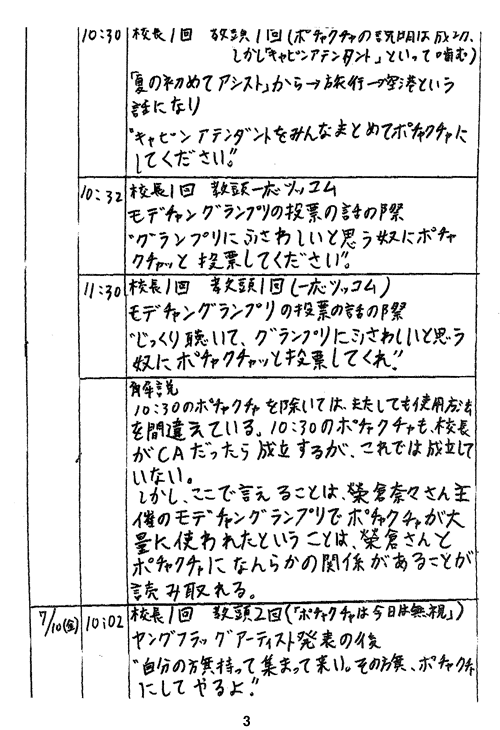 10:30 校長1回 教頭1回(ポチャクチャの説明は成功、
しかし「キャビンアテンダント」といって噛む)
「夏の初めてアシスト」から→旅行→空港という
話になり
"キャビンアテンダントをみんなまとめてポチャクチャに
してください。"
10:32 校長1回 教頭一応ツッコム
モデチャングランプリの投票の話の際
"グランプリにふさわしいと思う奴にポチャ
クチャッと投票してください"。
11:30 校長1回 教頭1回(一応ツッコム)
モデチャングランプリの投票の話の際
"じっくり聴いて、グランプリにふさわしいと思う
奴にポチャクチャッと投票してくれ!"
解説
10:30のポチャクチャを除いては、またしても使用方法
を間違えている。10:30のポチャクチャも、校長
がCAだったら成立するが、これでは成立して
いない。
しかし、ここで言えることは、榮倉奈々さん主
催のモデチャングランプリでポチャクチャが大
量に使われたということは、榮倉さんと
ポチャクチャになんらかの関係があることが
読み取れる。
7/10(金) 10:02 校長1回 教頭2回(「ポチャクチャは今日は無視」)
ヤングフラッグアーティスト発表の後
"自分の旗持って集まって来い。その旗、ポチャクチャ
にしてやるよ!"
3